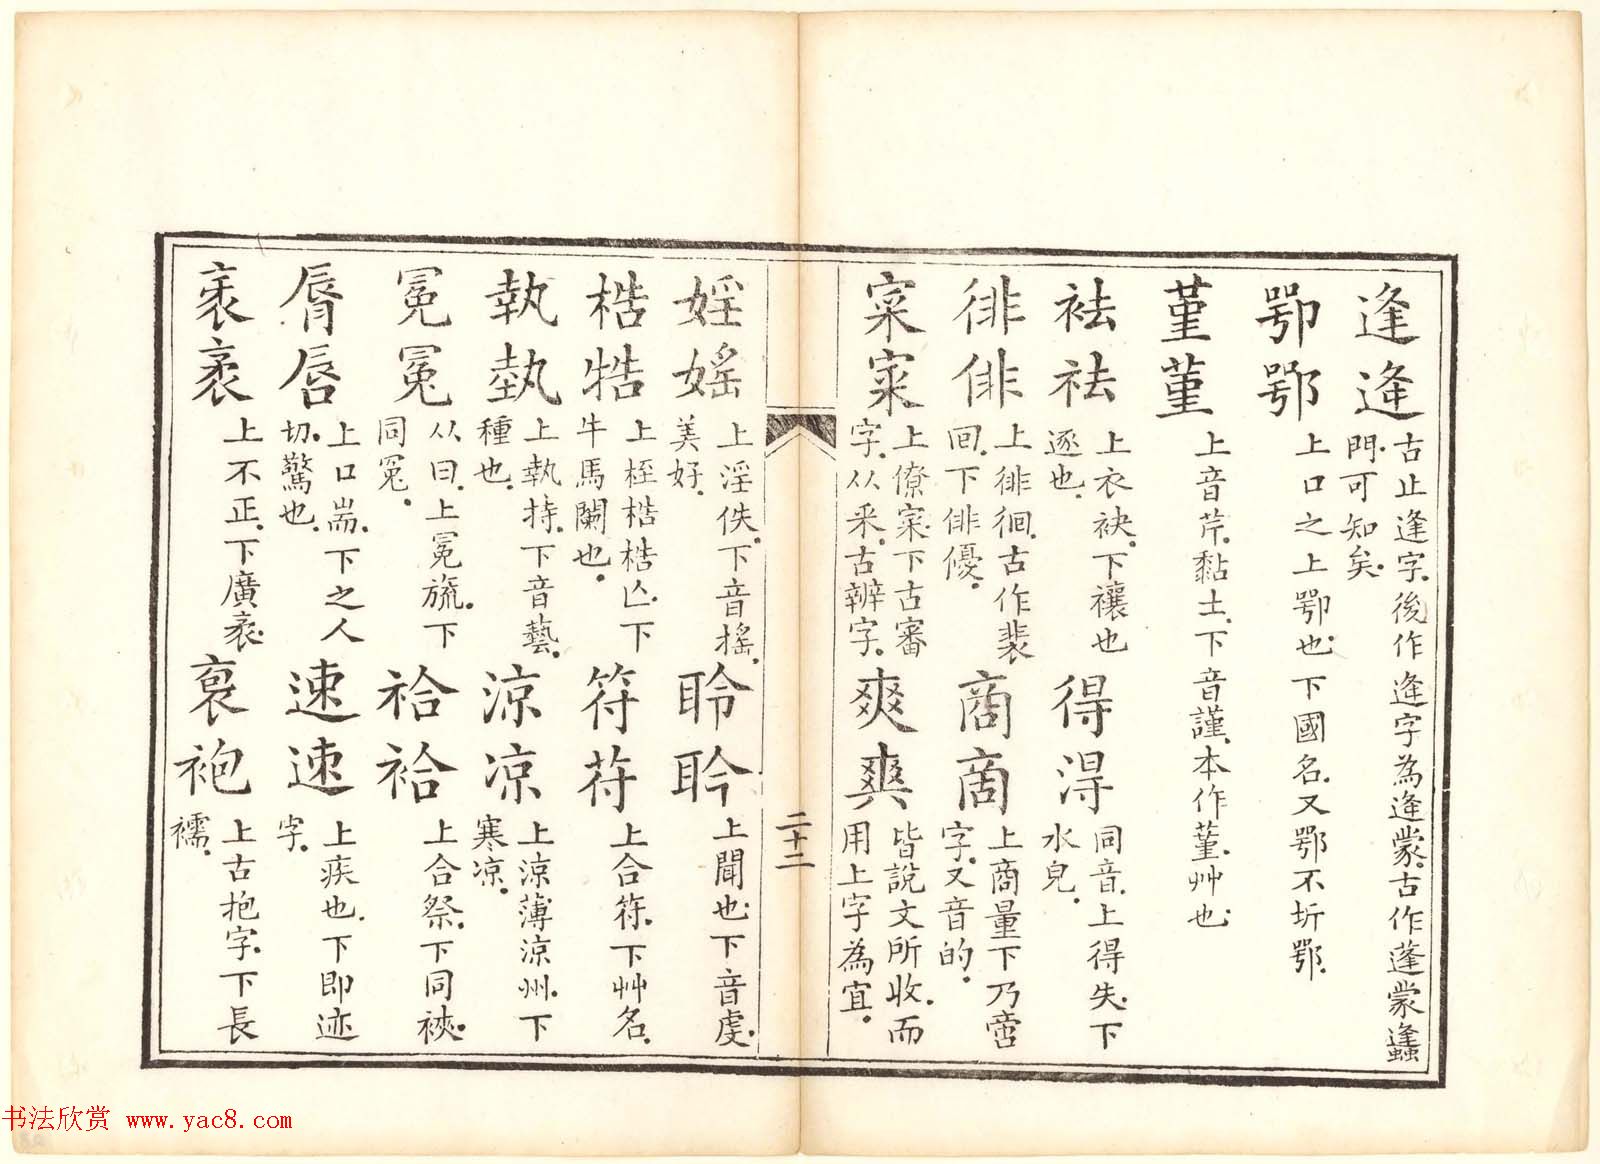 逢逄 古止逢字。後作逄字為逄蒙。古作蓬蒙蠭
門。可知矣。
鄂鄂 上口之上鄂也。下國名。又鄂不圻鄂。
堇菫 上音芹。黏土。下音謹。本作菫。艸也。
袪祛 上衣袂。下禳也
逐也。
得淂 同音。上得失。下
水皃。
徘俳 上徘徊。古作裴
回。下俳優。
商啇 上商量下乃啻
字。又音的。
寀寀 上僚寀。下古審
字。从釆。古辨字。
爽爽 皆說文所收。而
用上字為宜。
二十二
婬媱 上淫佚。下音搖。
美好。
聆聆 上聞也。下音虔。
梏牿 上桎梏梏亾。下
牛馬闌也。
符苻 上合符。下艸名。
執埶 上執持。下音藝。
種也。
涼凉 上涼薄涼州。下
寒凉。
冕冤 从曰。上冕旒。下
同冤。
祫袷 上合祭。下同裌。
脣唇 上口耑。下之人
切。驚也。
速速 上疾也。下即迹
字。
衺袤 上不正。下廣袤。
裒袍 上古抱字。下長
襦。
书法欣赏 www.yac8.com